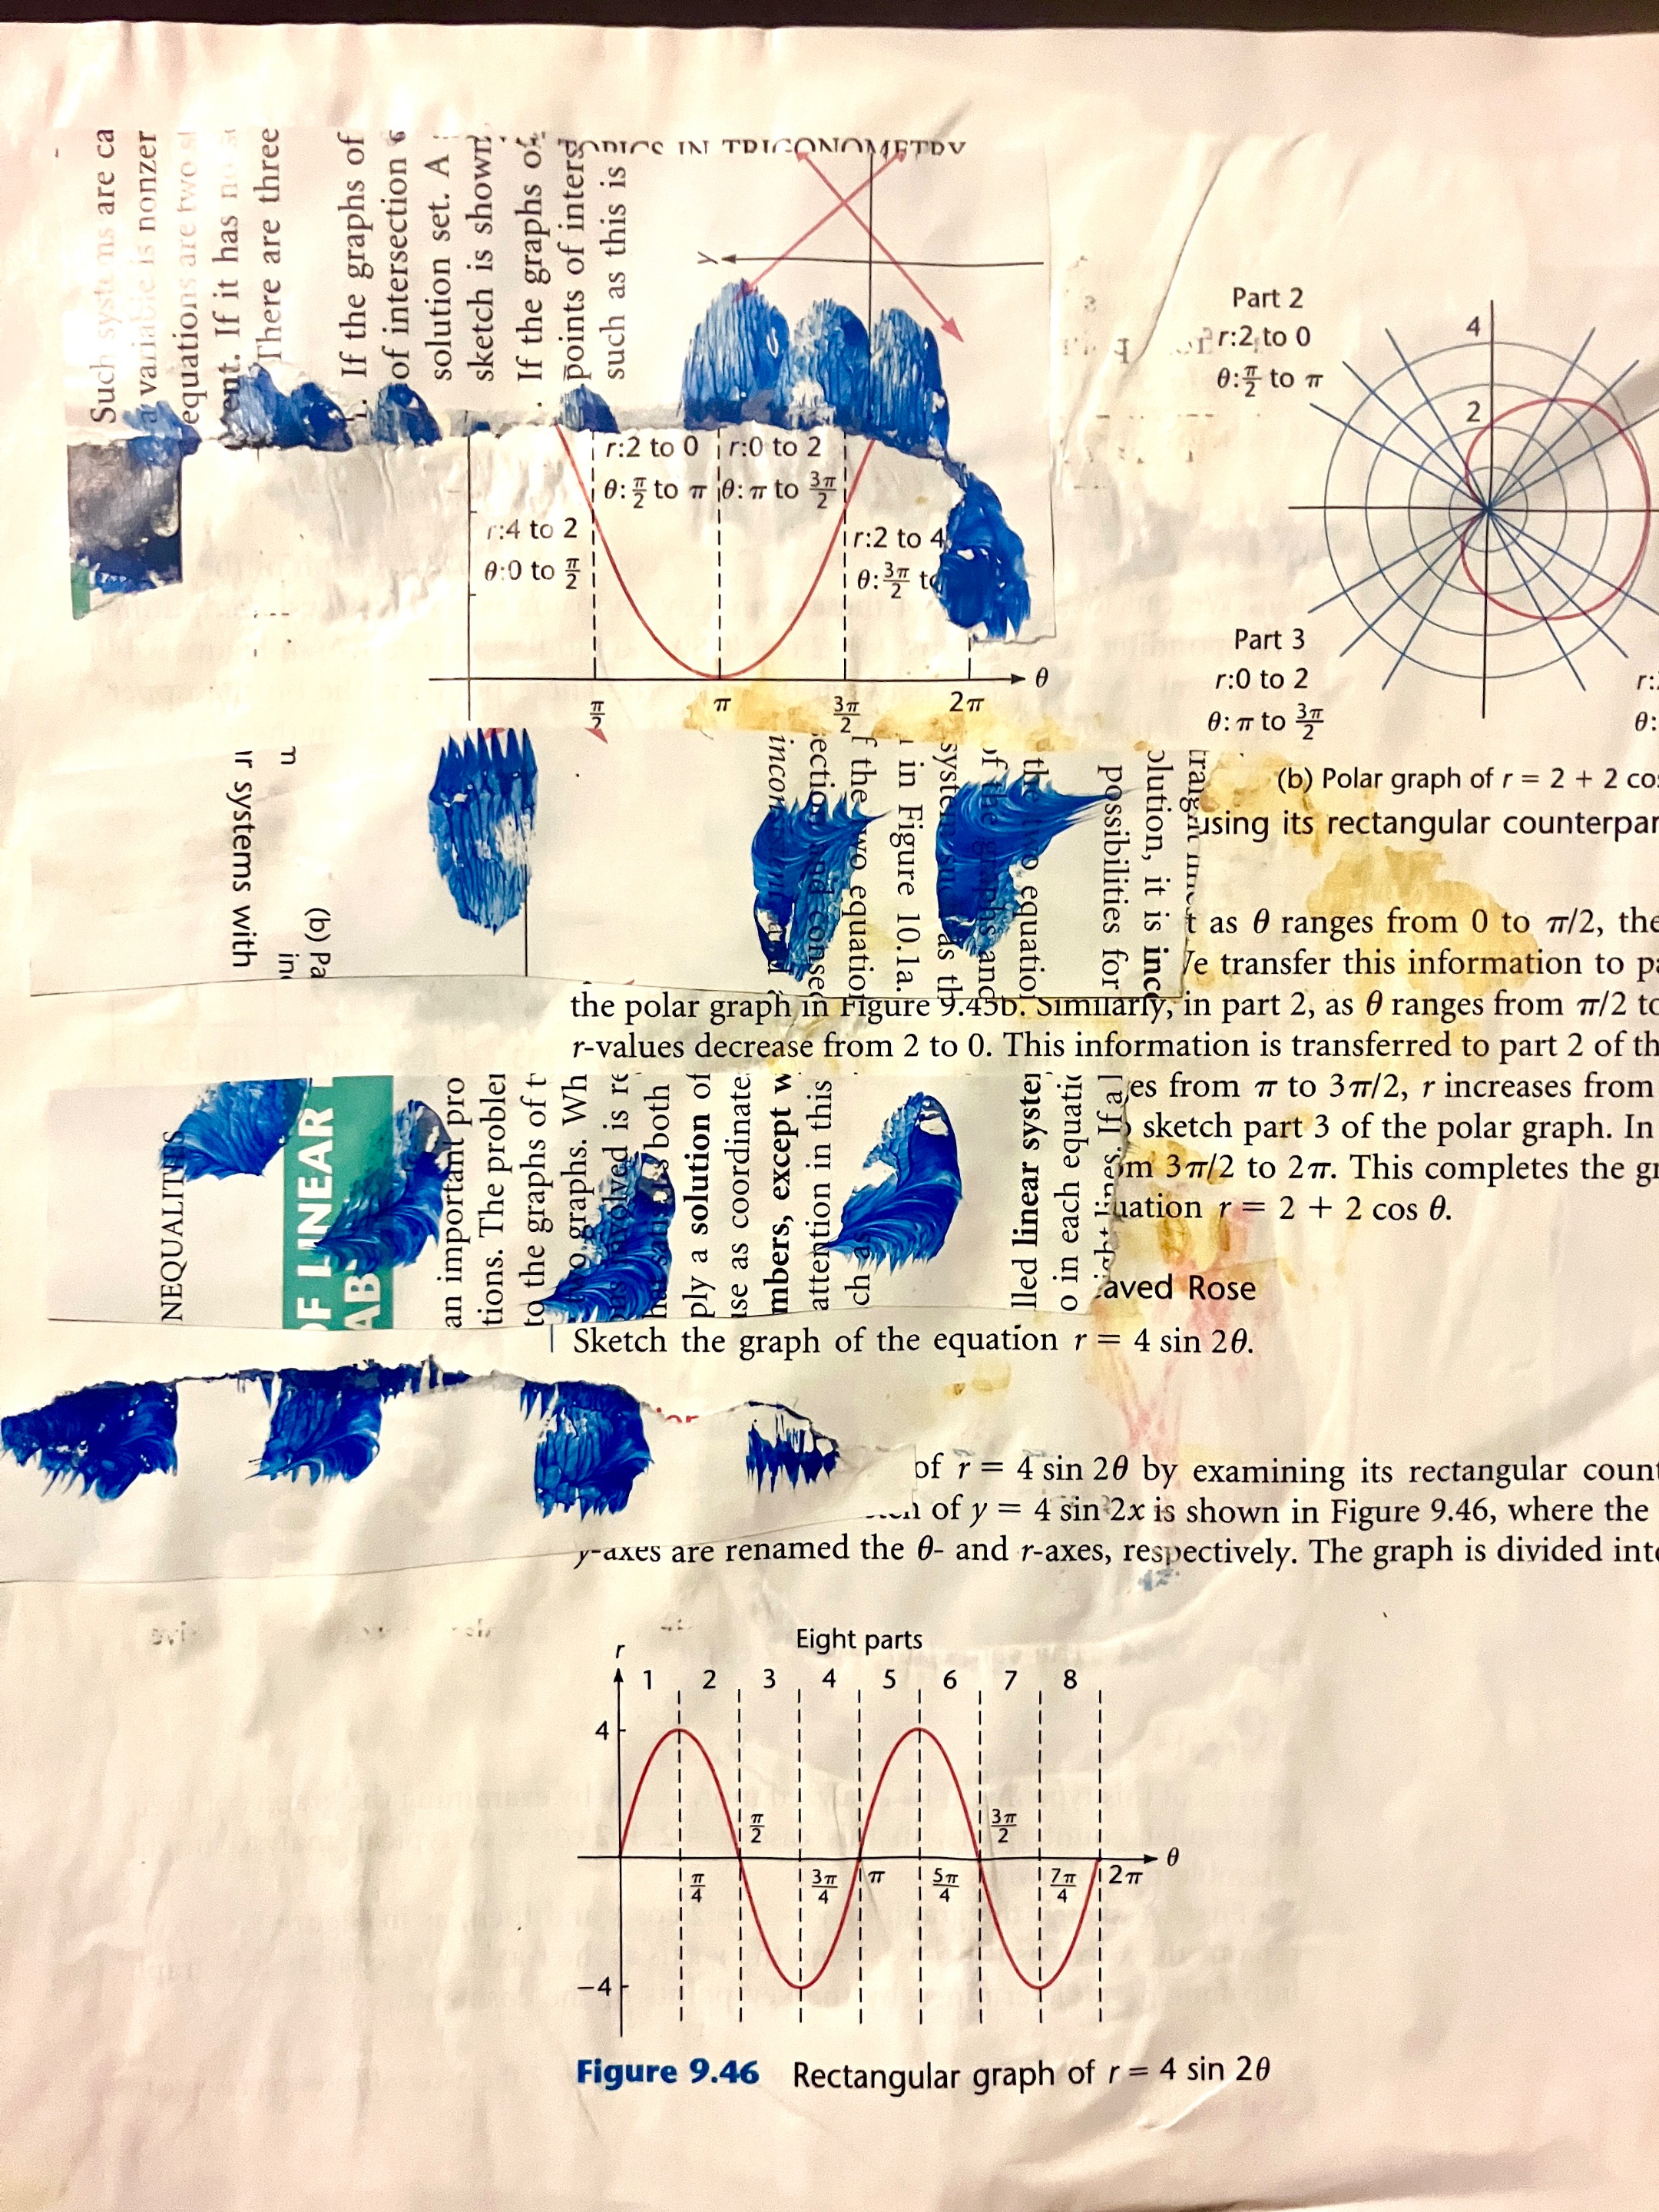 Such systems are ca
a variable is nonzer
equations are two
ent. If it has no
There are three
If the graphs of
of intersection
solution set. A
sketch is shown
If the graphs of
points of inters
such as this is
TOPICS IN TRIGONOMETRY
y
r:2 to 0
θ: π/2 to π
r:0 to 2
θ: π to 3π/2
r:4 to 2
θ:0 to π/2
r:2 to 4
θ: 3π/2 to
θ
π/2 π 3π/2 2π
Part 2
r:2 to 0
θ: π/2 to π
4
2
Part 3
r:0 to 2
θ: π to 3π/2
r:
θ:
(b) Polar graph of r = 2 + 2 cos
using its rectangular counterpar
ir systems with
(b) Pa
in
f the two equatio
in Figure 10.1a.
as th
of the graphs and
the two equatio
possibilities for
olution, it is inc
t as θ ranges from 0 to π/2, the
We transfer this information to pa
the polar graph in Figure 9.45b. Similarly, in part 2, as θ ranges from π/2 to
r-values decrease from 2 to 0. This information is transferred to part 2 of th
es from π to 3π/2, r increases from
sketch part 3 of the polar graph. In
om 3π/2 to 2π. This completes the gr
uation r = 2 + 2 cos θ.
NEQUALITIES
OF LINEAR
AB
an important pro
tions. The probler
to the graphs of t
graphs. Wh
involved is re
both
ply a solution of
use as coordinate
mbers, except w
attention in this
ch as
lled linear syste
o in each equatio
ight lines. If a
aved Rose
Sketch the graph of the equation r = 4 sin 2θ.
of r = 4 sin 2θ by examining its rectangular count
of y = 4 sin 2x is shown in Figure 9.46, where the
y-axes are renamed the θ- and r-axes, respectively. The graph is divided into
Eight parts
r
1 2 3 4 5 6 7 8
4
π/2 3π/2
θ
π/4 3π/4 π 5π/4 7π/4 2π
−4
Figure 9.46 Rectangular graph of r = 4 sin 2θ